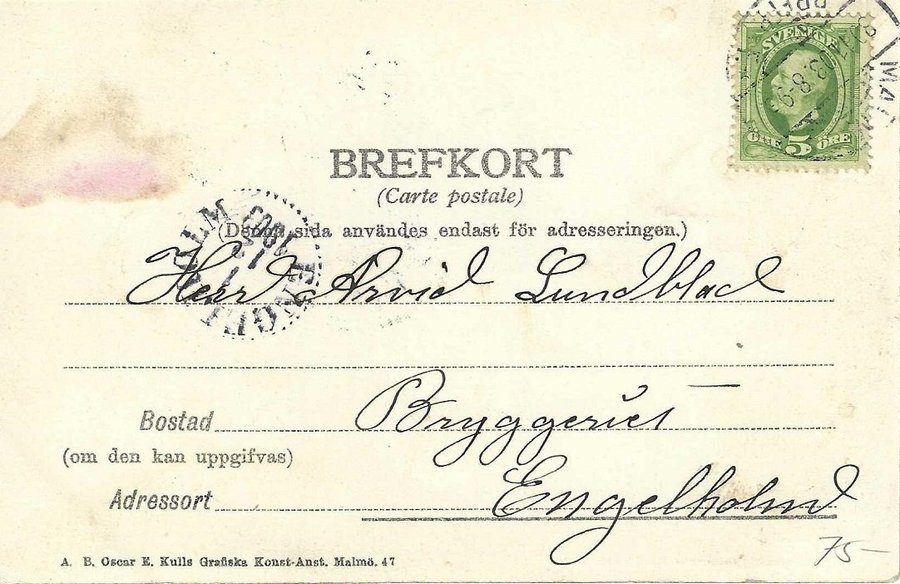 SVERIGE
ÖRE 5 ÖRE
BREFKORT
(Carte postale)
(Denna sida användes endast för adresseringen.)
ENGELHOLM
1903
Herr Arvid Lundblad
Bostad Bryggeriet
(om den kan uppgifvas)
Adressort Engelholm
75-
A. B. Oscar E. Kulls Grafiska Konst-Anst. Malmö. 47